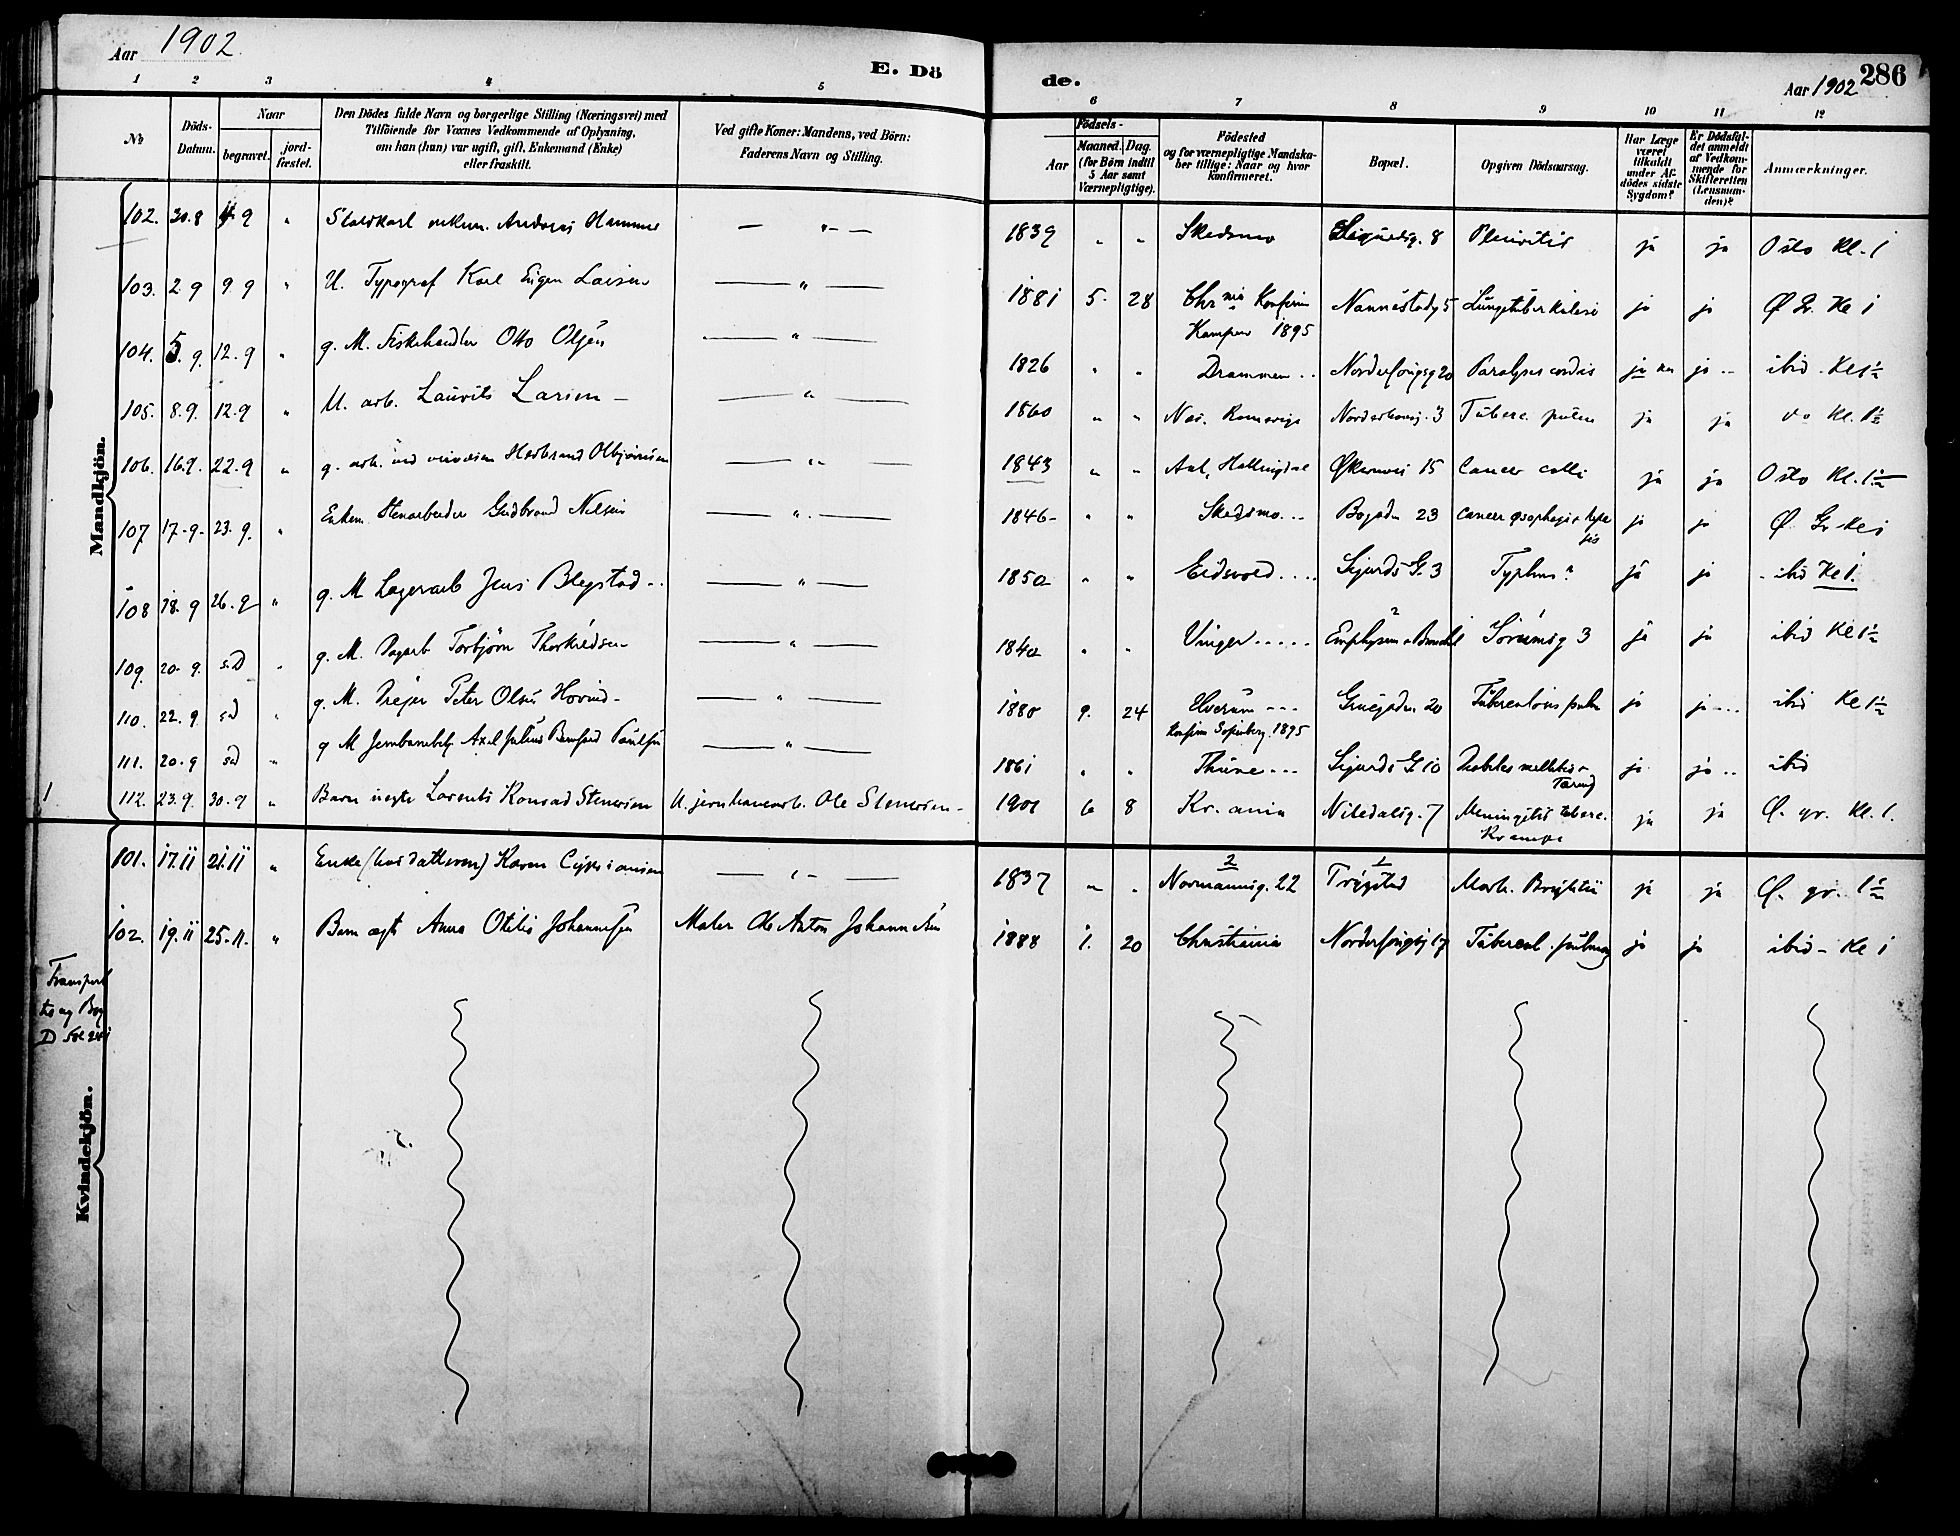 Aar 1902
E. Dö
de.
Aar 1902
286
1 2 3 4 5
6 7 8 9 10 11 12
No
Döds-
Datum.
Naar
begravet.
jord-
fæstet.
Den Dödes fulde Navn og borgerlige Stilling (Næringsvei) med
Tilföiende for Voxnes Vedkommende af Oplysning,
om han (hun) var ugift, gift, Enkemand (Enke)
eller fraskilt.
Ved gifte Koner: Mandens, ved Börn:
Faderens Navn og Stilling.
Födsels-
Aar
Maaned. Dag.
(for Börn indtil
5 Aar samt
Værnepligtige).
Födested
og for værnepligtige Mandska-
ber tillige: Naar og hvor
konfirmeret.
Bopæl.
Opgiven Dödsaarsag.
Har Læge
været
tilkaldt
under Af-
dödes sidste
Sygdom?
Er Dödsfal-
det anmeldt
af Vedkom-
mende for
Skifteretten
(Lensman-
den)?
Anmærkninger.
Mandkjön.
102. 30.8 4.9 " Andreas Hammer — " — 1839 " " Skedsmo Sigurdsg. 8 Pleuritis ja ja Oslo Kl. 1
103. 2.9 9.9 " U. Typograf Karl Eugen Larsen — " — 1881 5. 28 Chrnia Konfirm Nannestadg 5 Lungetuberkulose ja ja Ø Gr. Kl 1
Kampen 1895
104. 5.9. 12.9 " g. M. Fiskehandler Otto Olsen — " — 1826 " " Drammen Norderhovsg 20 Paralysis cordis ja ja ibid. Kl 1½
105. 8.9. 12.9 " U. arb. Laurits Larsen — " — 1860 " " Nes. Romerige Norderhovsg. 3 Tuberc. pulm ja ja do Kl. 1½
106. 16.9. 22.9 " g. arb. ved Herbrand Olbjørnsen — " — 1843 " " Aal, Hallingdal Økernvei 15 Cancer colli ja ja Oslo Kl. 1½
107 17.9. 23.9. " Enkem. Stenarbeider Gudbrand Nilsen — " — 1846 " " Skedsmo Bogadn 23 Cancer ja ja Ø. Gr. Kl 1
108 18.9 26.9 " g. M Lagerarb Jens Blegstad — " — 1850 " " Eidsvold Sigurds G. 3 Typhus? ja ja ibid Kl 1.
109. 20.9. sd " g. M. Torbjörn Thorkildsen — " — 1840 " " Vinger 2 1 Sörumsg 3 ja ja ibid Kl 1½
110. 22.9 sd " g. M. Dreier Peter Olsen Hovind — " — 1880 9. 24 Elverum Gruegaden 20 Tuberculosis pulm ja ja ibid Kl 1½
1895
111. 20.9 sd " g M Axel Julius Paulsen — " — 1861 " " Thune Sigurds G. 10 Diabetes mellitus ja ja ibid
1 112. 23.9. 30.9 " Barn uegte Lorents Konrad Stenersen U. Ole Stenersen 1901 6 8 Kr. ania Nitedalsg. 7 Meningitis tuberc. ja ja Ø. gr. Kl. 1.
Krampe
Kvindekjön.
101. 17.11 21.11 " Enke Karen — " — 1837 " " 2 Normannsg. 22 1 Trygstad Morb. Brightii ja ja Ø. gr. 1½
102. 19.11 25.11. " Barn ægte Anna Otilie Johannesen Maler Ole Anton Johannesen 1888 1. 20 Christiania Tubercul. pulmon ja ja ibid Kl 1